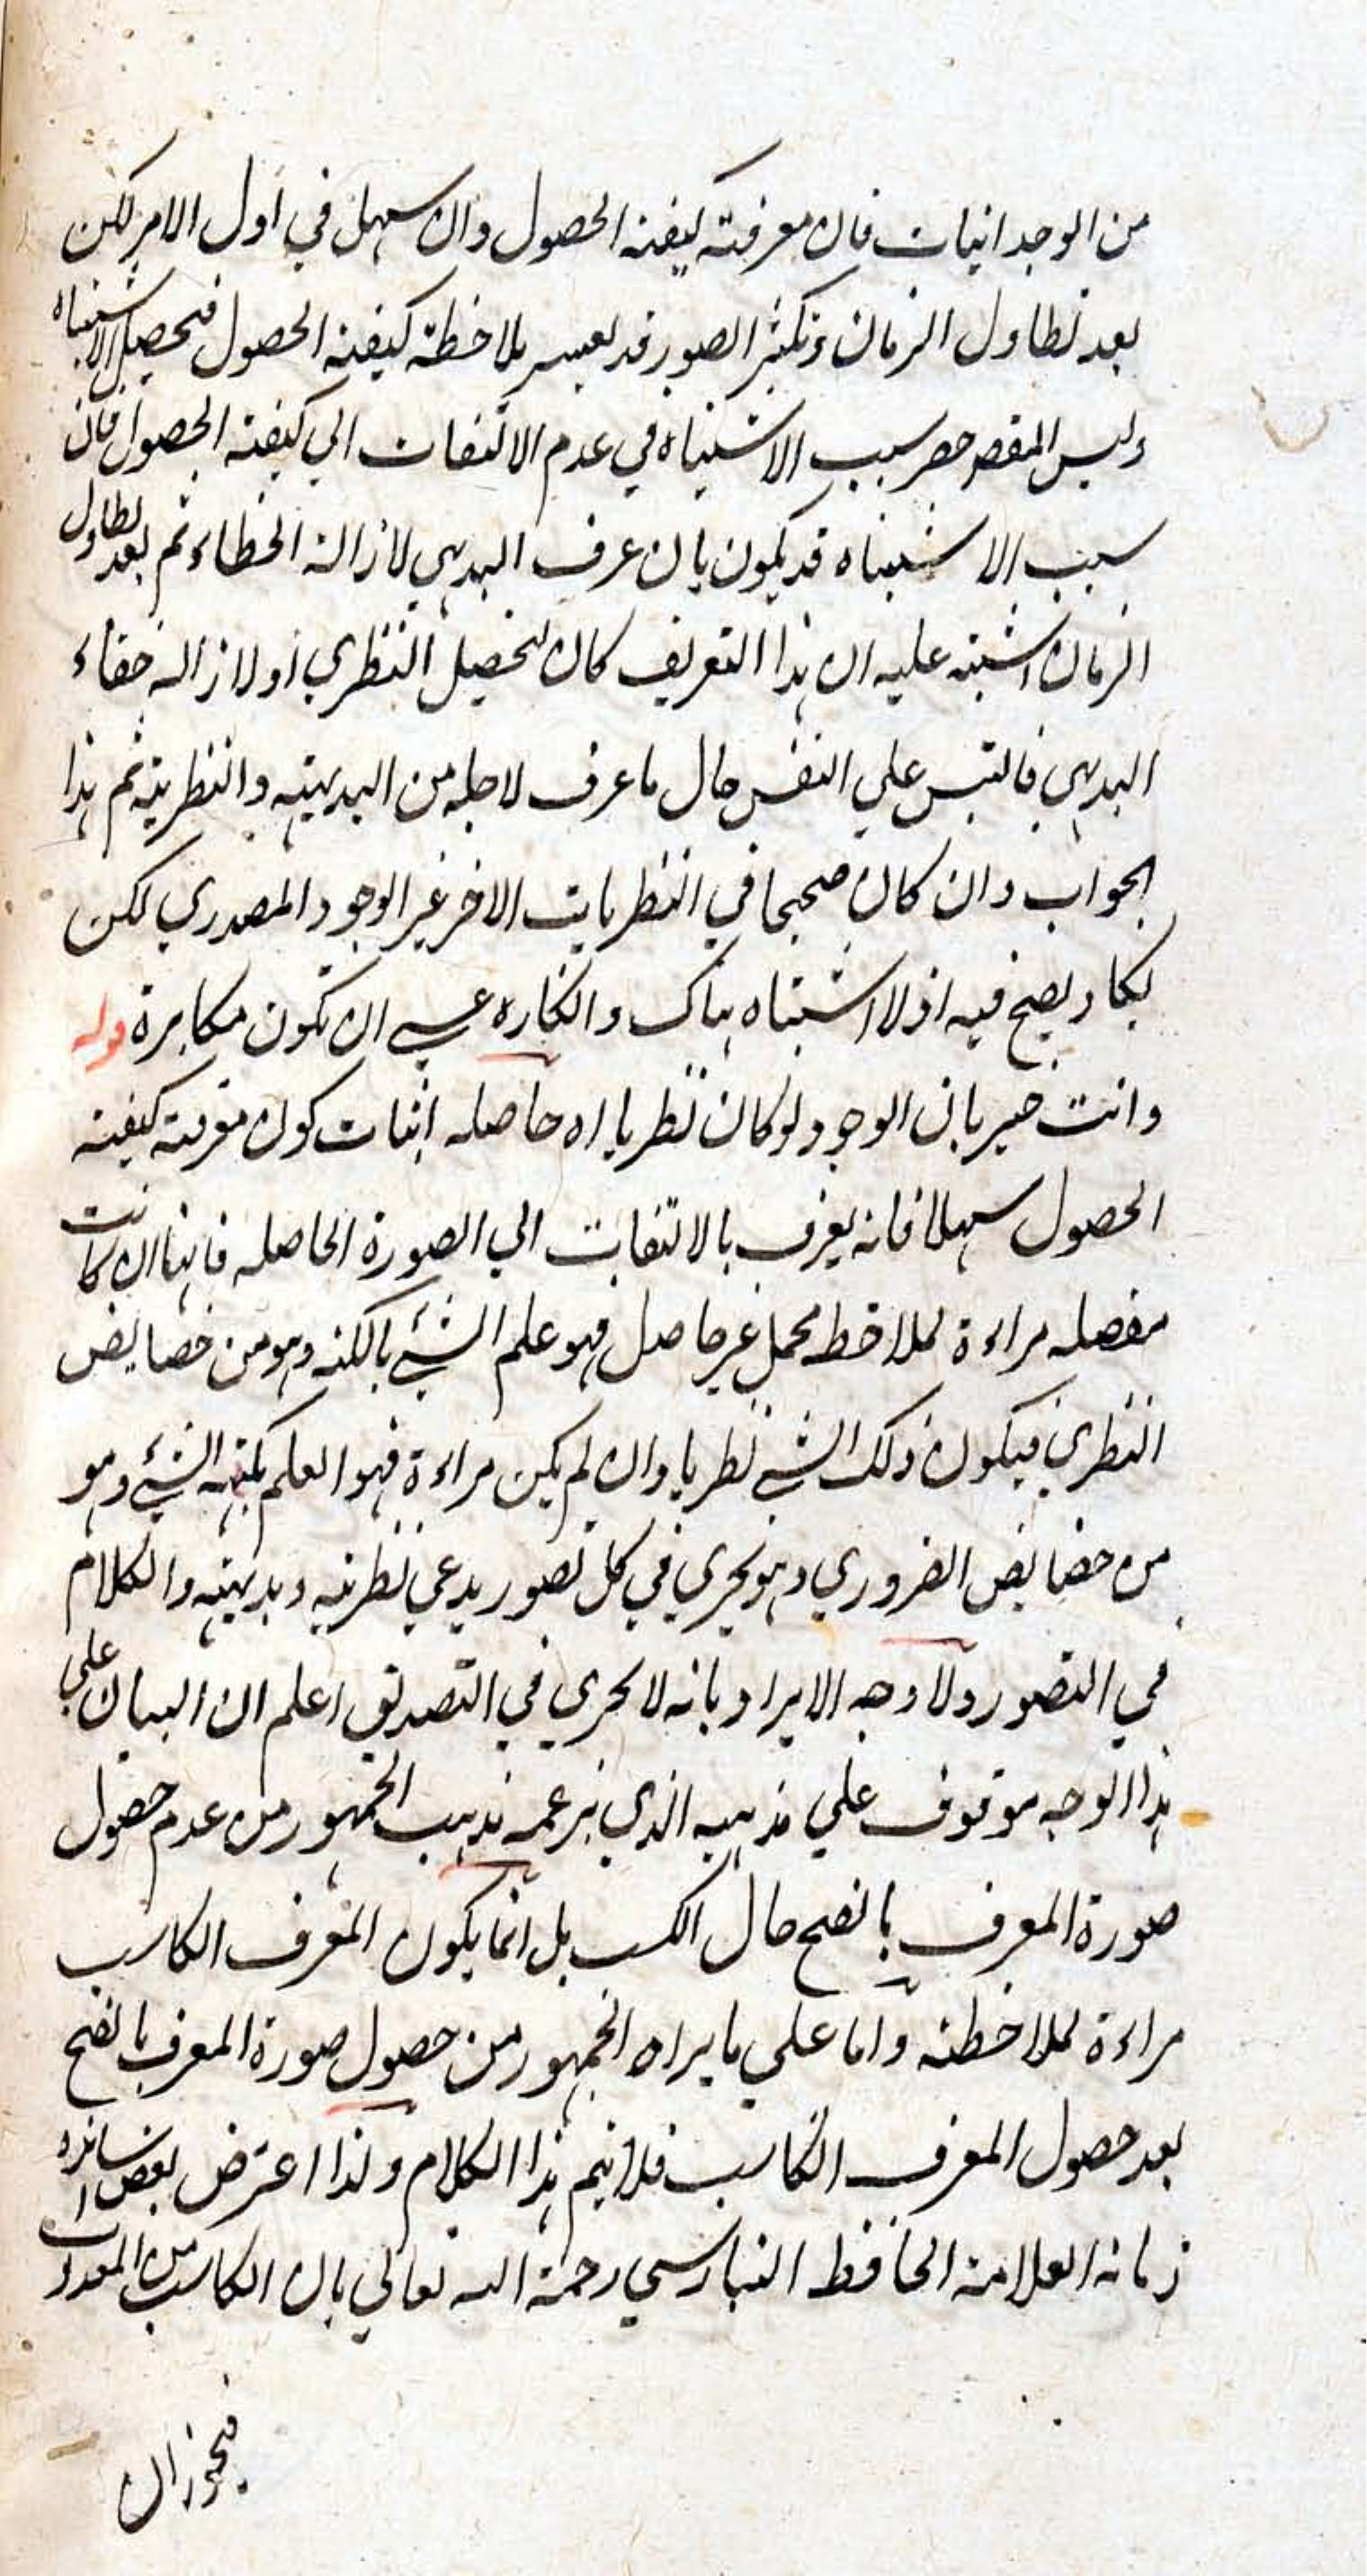 من الوجدانيات فان معرفته كيفية الحصول وان سهل في اول الامر لكن
بعد تطاول الزمان وتكثر الصور قد يعسر ملاحظة كيفية الحصول فيحصل الاشتباه
وليس المقصود حصر سبب الاشتباه في عدم الالتفات الي كيفية الحصول فان
سبب الاشتباه قد يكون بان عرف البديهي لازالة الخطاء ثم بعد تطاول
الزمان اشتبه عليه ان هذا التعريف كان لتحصيل النظري او لازالة خفاء
البديهي فالتبس علي النفس حال ما عرف لاجله من البديهية والنظرية ثم هذا
الجواب وان كان صحيحا في النظريات الاخر غير الوجود المصدري لكن
يكاد يصح فيه اذ لا اشتباه هناك وانكاره عسي ان تكون مكابرة قوله
وانت خبير بان الوجود لو كان نظريا اه حاصله اثبات كون معرفته كيفية
الحصول سهلا فانه يعرف بالالتفات الي الصورة الحاصله فانها ان كانت
مفصله مراءة لملاحظه مجمل غير حاصل فهو علم الشيء بالكنه وهو من خصايص
النظري فيكون ذلك الشي نظريا وان لم يكن مراءة فهو العلم بكنهه الشيء وهو
من خصايص الضروري وهو يجري في كل تصور يدعي نظريته وبديهيته والكلام
في التصور ولا وجه الايراد بانه لا يجري في التصديق اعلم ان البيان علي
هذا الوجه موقوف علي مذهبه الذي يزعمه مذهب الجمهور من عدم حصول
صورة المعرف بالفتح حال الكسب بل انما يكون المعرف الكاسب
مراءة لملاحظته واما علي ما يراه الجمهور من حصول صورة المعرف بالفتح
بعد حصول المعرف الكاسب فلا يتم هذا الكلام ولذا اعترض بعض اساتذه
زمانه العلامة الحافظ البنارسي رحمة الله تعالي بان الكاسب من المعدات
فيجوز ان